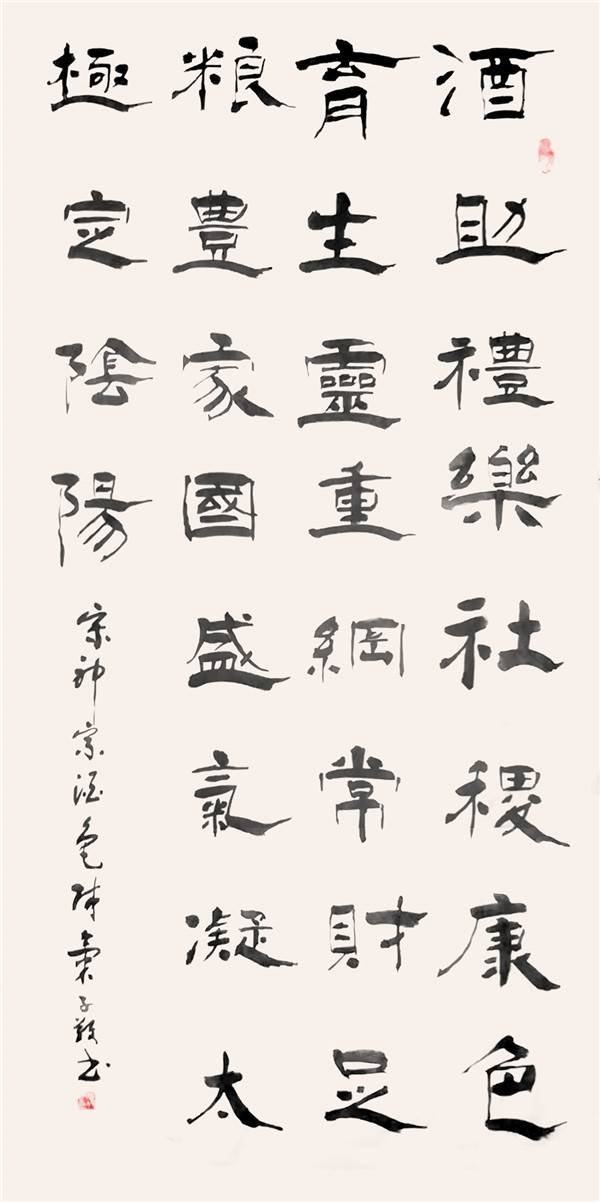 酒助禮樂社稷康色
育生靈重綱常財足
粮豊家國盛氣凝太
極定陰陽
宋神宗酒色财氣子书